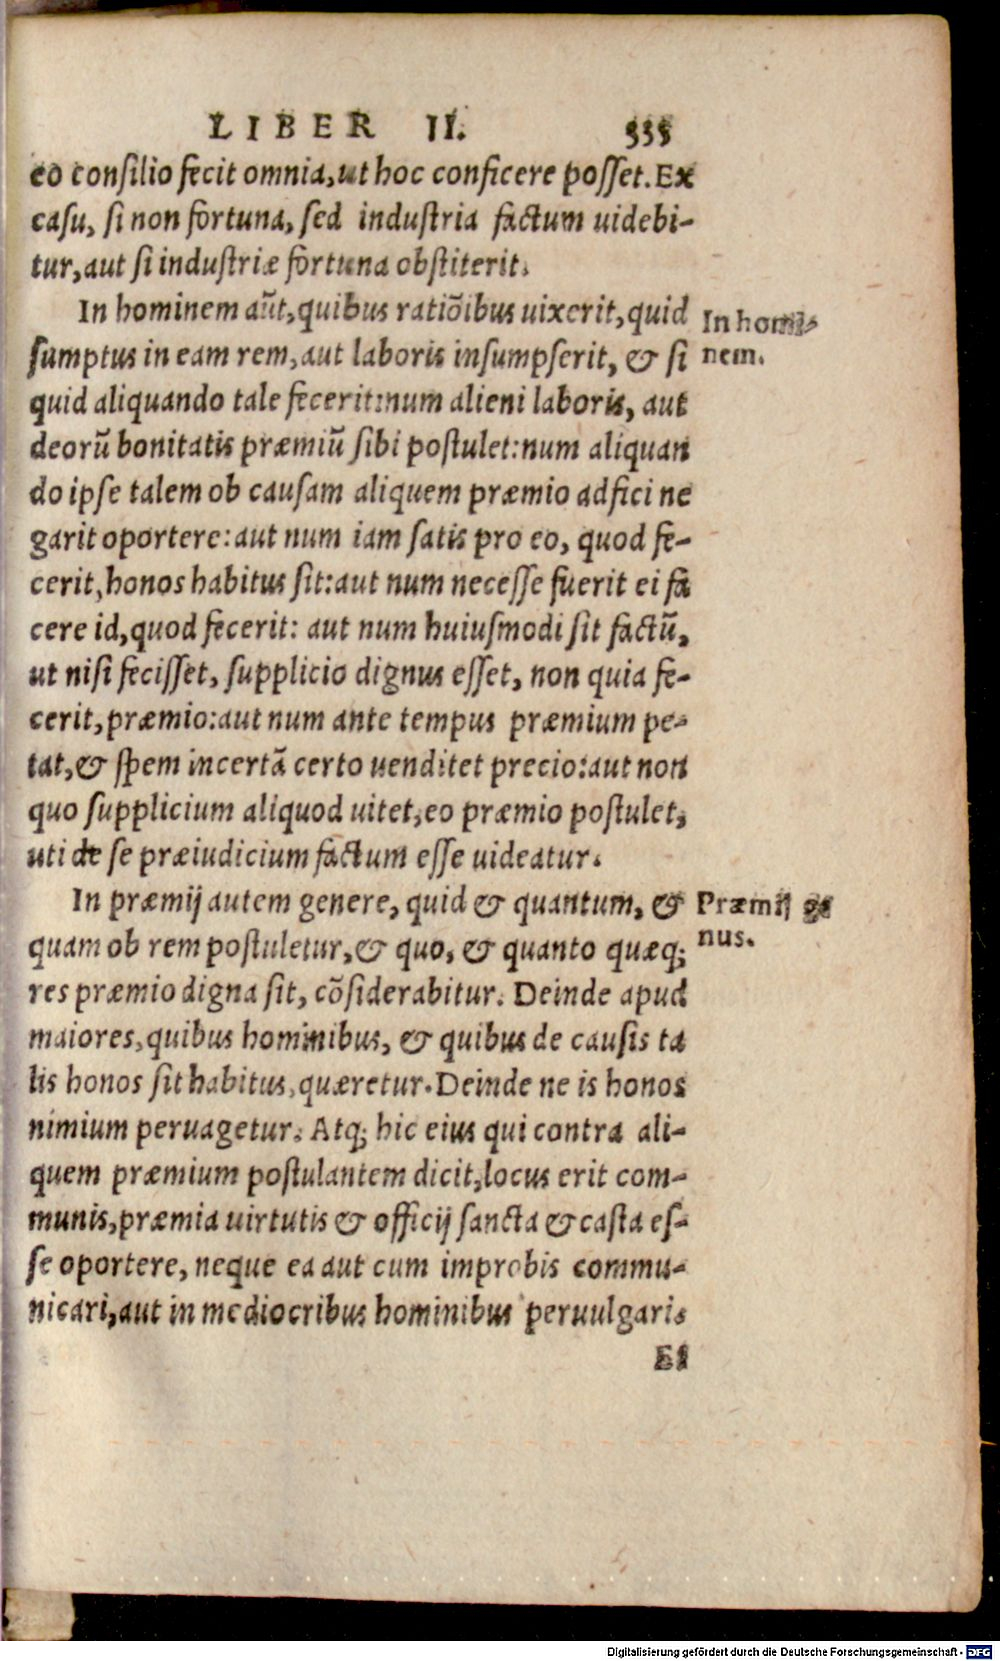 LIBER II. 335
eo consilio fecit omnia, ut hoc conficere posset. Ex
casu, si non fortuna, sed industria factum uidebi-
tur, aut si industriæ fortuna obstiterit.
In hominem aũt, quibus ratiõibus uixerit, quid
sumptus in eam rem, aut laboris insumpserit, & si
In homi-
nem.
quid aliquando tale fecerit: num alieni laboris, aut
deorũ bonitatis præmiũ sibi postulet: num aliquan
do ipse talem ob causam aliquem præmio adfici ne
garit oportere: aut num iam satis pro eo, quod fe-
cerit, honos habitus sit: aut num necesse fuerit ei fa
cere id, quod fecerit: aut num huiusmodi sit factũ,
ut nisi fecisset, supplicio dignus esset, non quia fe-
cerit, præmio: aut num ante tempus præmium pe-
tat, & spem incertã certo uenditet precio: aut non
quo supplicium aliquod uitet, eo præmio postulet,
uti de se præiudicium factum esse uideatur.
In præmij autem genere, quid & quantum, &
Præmij ge
nus.
quam ob rem postuletur, & quo, & quanto quæq;
res præmio digna sit, cõsiderabitur. Deinde apud
maiores, quibus hominibus, & quibus de causis ta
lis honos sit habitus, quæretur. Deinde ne is honos
nimium peruagetur. Atq; hic eius qui contra ali-
quem præmium postulantem dicit, locus erit com-
munis, præmia uirtutis & officij sancta & casta es-
se oportere, neque ea aut cum improbis commu-
nicari, aut in mediocribus hominibus peruulgari.
Et
Digitalisierung gefördert durch die Deutsche Forschungsgemeinschaft - DFG